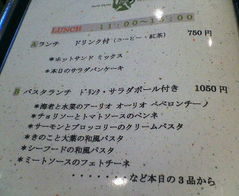 LUNCH 11:00~15:00
Aランチ ドリンク付(コーヒー・紅茶) 750円
*ホットサンド ミックス
*本日のサラダパンケーキ
Bパスタランチ ドリンク・サラダボール付き 1050円
*海老と水菜のアーリオ オーリオ ペペロンチーノ
*チョリソーとトマトソースのペンネ
*サーモンとブロッコリーのクリームパスタ
*きのこと大葉の和風パスタ
*シーフードの和風パスタ
*ミートソースのフェトチーネ
・・・など本日の3品から